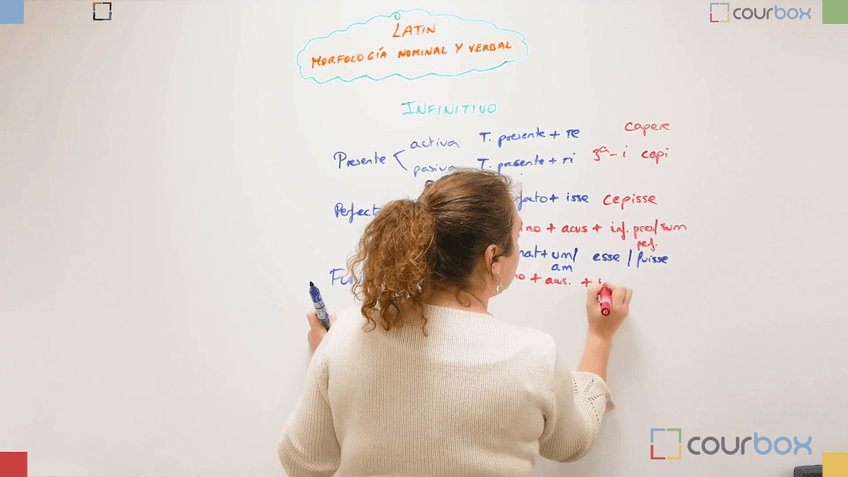 courbox
LATIN
MORFOLOGÍA NOMINAL Y VERBAL
INFINITIVO
Presente
activa T. presente + re capere
pasiva T. presente + ri 3ª - i capi
Perfect + isse cepisse
+ acus + inf. pres/sum
perf.
+ um/ esse / fuisse
am
+ acus. +
courbox